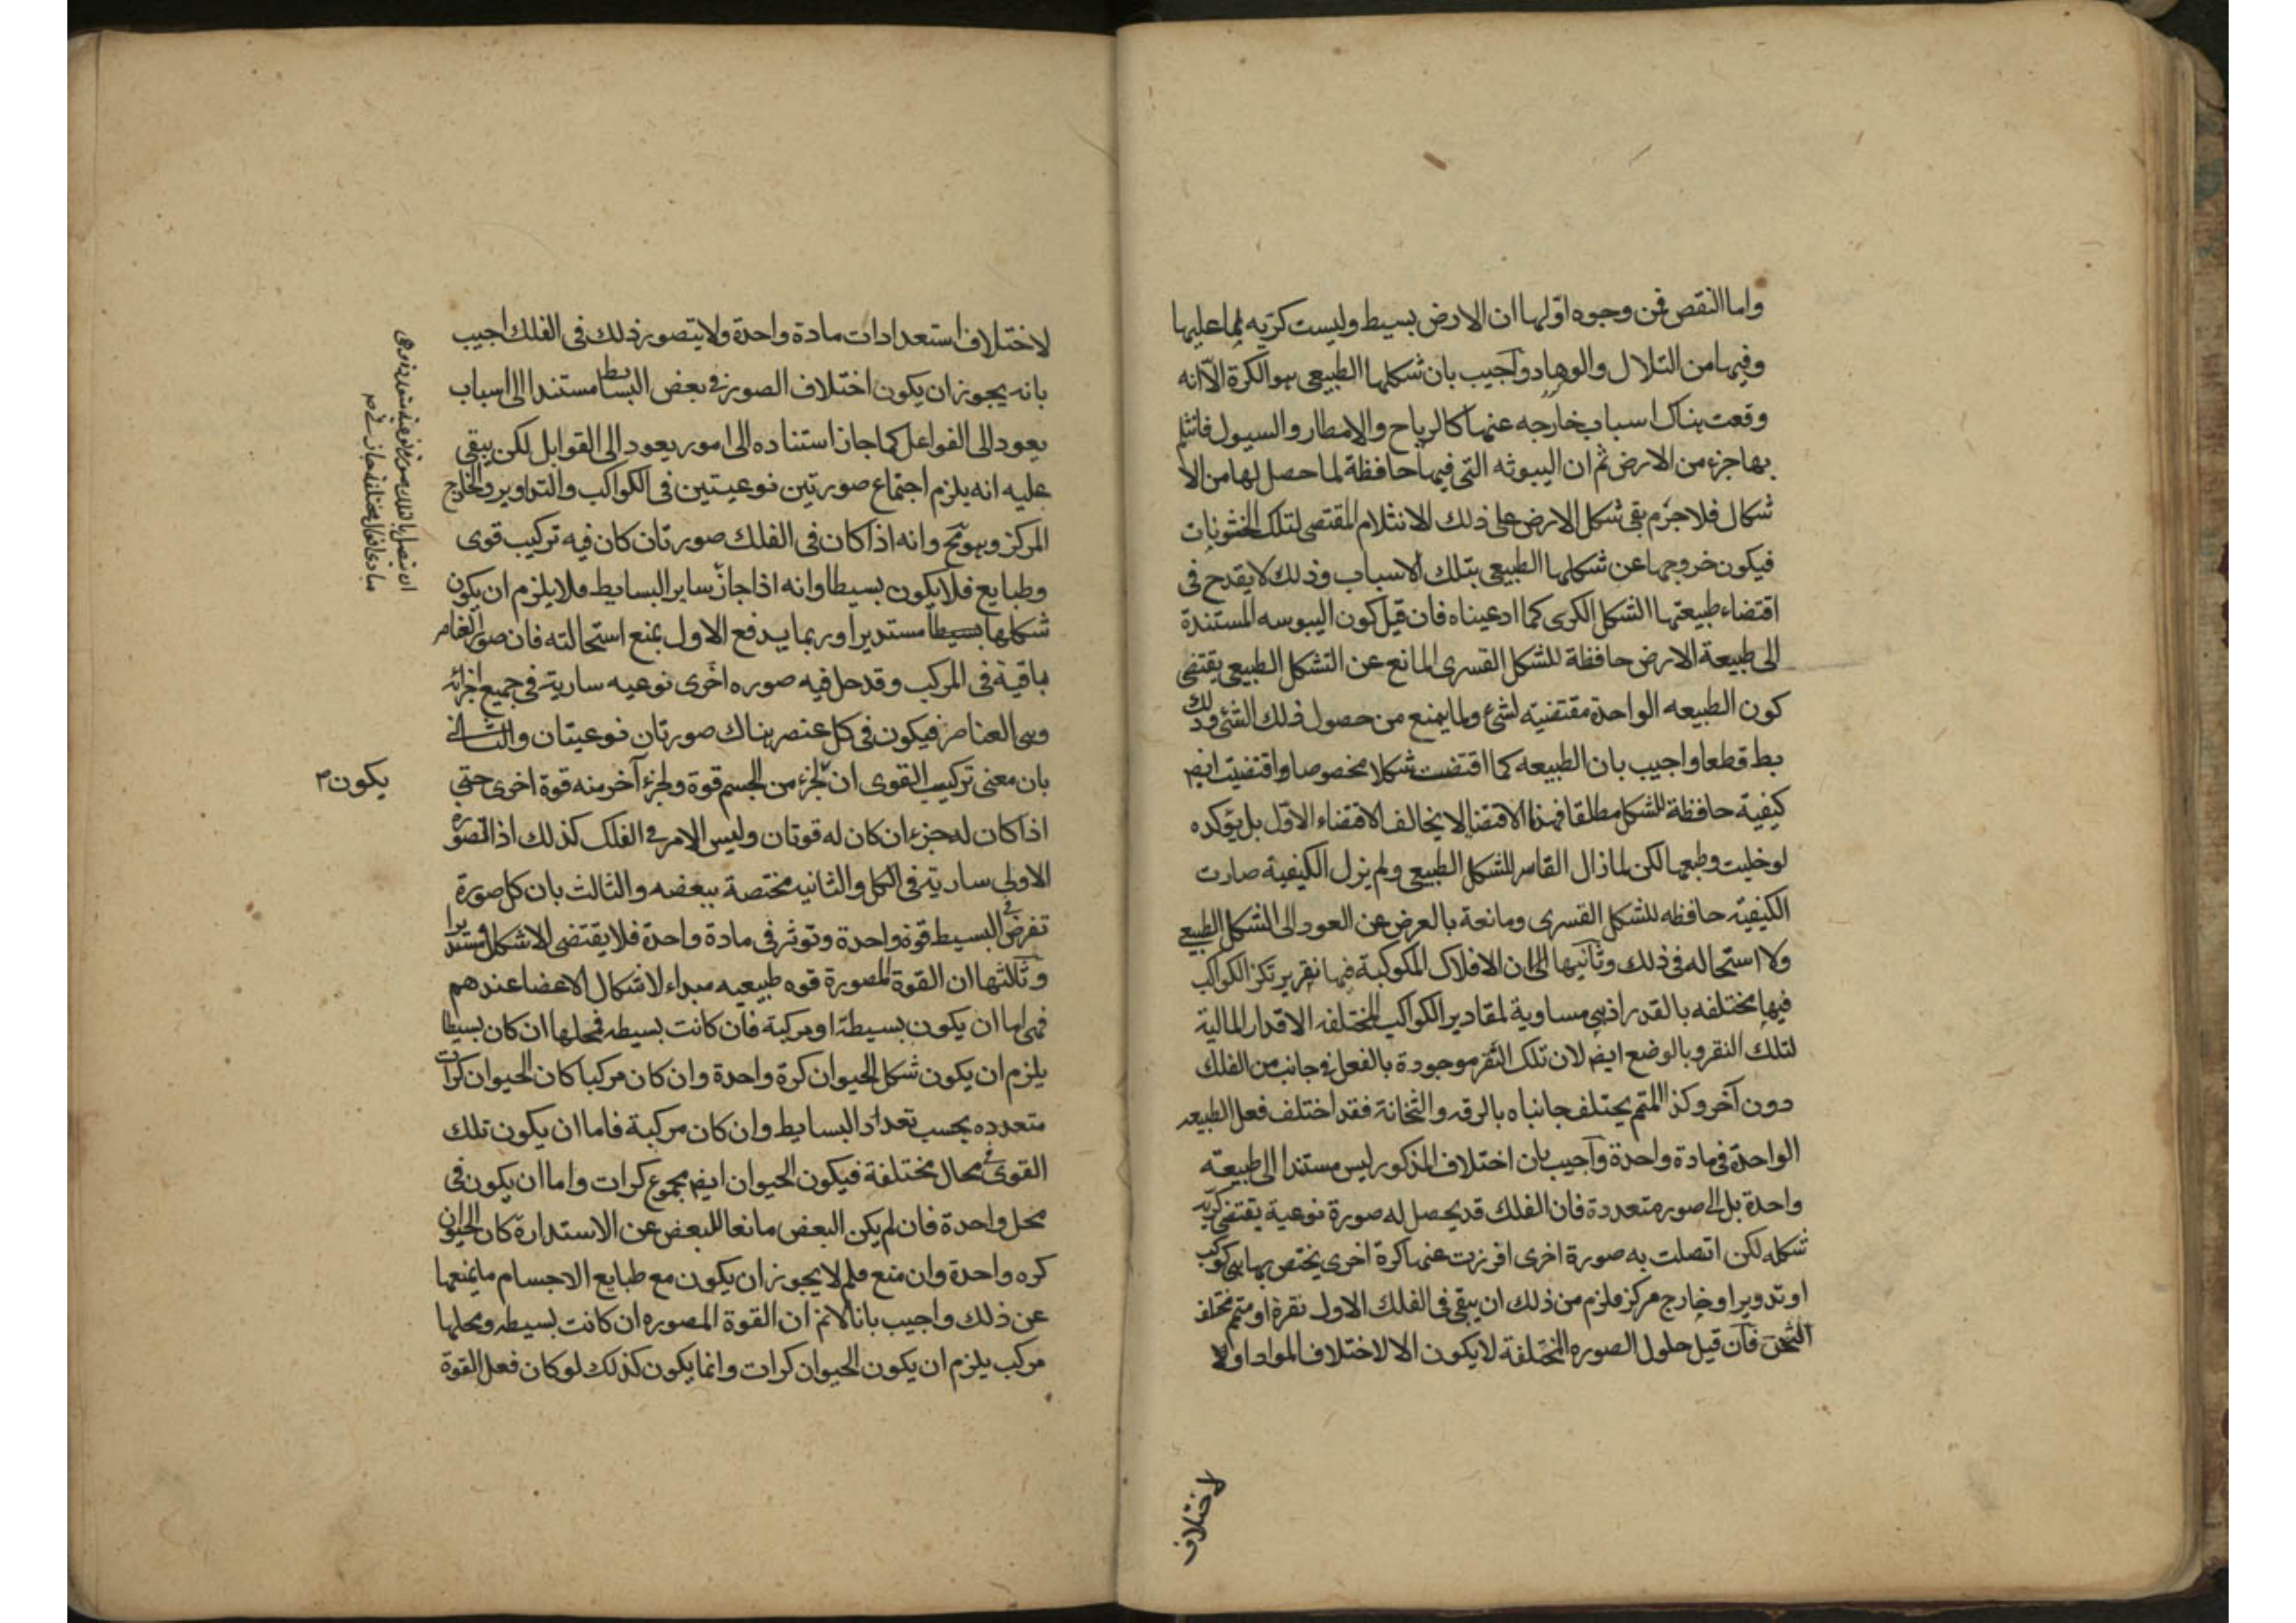 واما النقص فمن وجوه اولها ان الارض بسيط وليست كريه لما عليها
وفيها من التلال والوهاد واجيب بان شكلها الطبيعى هو الكرة الا انه
وقعت هناك اسباب خارجه عنها كالرياح والامطار والسيول فانثلم
بها جزء من الارض ثم ان اليبوثه التى فيها حافظة لما حصل لها من الا
شكال فلا جرم بقى شكل الارض على ذلك الانثلام المقتضى لتلك الخشونات
فيكون خروجها عن شكلها الطبيعى بتلك الاسباب وذلك لا يقدح فى
اقتضاء طبيعتها الشكل الكرى كما ادعيناه فان قيل كون اليبوسه المستندة
الى طبيعة الارض حافظة للشكل القسرى المانع عن التشكل الطبيعى يقتضى
كون الطبيعه الواحدة مقتضية لشئ ولما يمنع من حصول ذلك الشئ وذلك
بط قطعا واجيب بان الطبيعه كما اقتضت شكلا مخصوصا واقتضيت ايضا
كيفية حافظة للشكل مطلقا فهذا الاقتضا لا يخالف الاقتضاء الاول بل يؤكده
لو خليت وطبعها لكن لما زال القاسر للشكل الطبيعى ولم يزل الكيفية صارت
الكيفية حافظه للشكل القسرى ومانعة بالعرض عن العود الى الشكل الطبيعى
ولا استحاله فى ذلك وثانيها الى ان الافلاك المكوكبة فيها نقر يرتكز الكواكب
فيها مختلفه بالقدر اذ هى مساوية لمقادير الكواكب المختلفه الاقدار المالية
لتلك النقر وبالوضع ايضا لان تلك النقر موجودة بالفعل فى جانب من الفلك
دون آخر وكذا المتمم يختلف جانباه بالرقه والثخانة فقد اختلف فعل الطبيعه
الواحدة فى مادة واحدة واجيب بان اختلاف المذكور ليس مستندا الى طبيعته
واحدة بل الى صور متعددة فان الفلك قد يحصل له صورة نوعية يقتضى كرية
شكله لكن اتصلت به صورة اخرى افرزت عنها كرة اخرى يختص بها هى كوكب
او تدوير او خارج مركز فلزم من ذلك ان يبقى فى الفلك الاول نقرة او متمم مختلف
الثخن فان قيل حلول الصوره المختلفة لا يكون الا لاختلاف المواد او لا
لاختلاف
لاختلاف استعدادات مادة واحدة ولا يتصور ذلك فى الفلك اجيب
بانه يجوز ان يكون اختلاف الصور فى بعض البسائط مستندا الى اسباب
يعود الى الفواعل كما جاز استناده الى امور يعود الى القوابل لكن يبقى
عليه انه يلزم اجتماع صورتين نوعيتين فى الكواكب والتداوير والخارج
المركز وهو مح وانه اذا كان فى الفلك صورتان كان فيه تركيب قوى
وطبايع فلا يكون بسيطا وانه اذا جاز سائر البسايط فلا يلزم ان يكون
شكلها بسيطا مستديرا وربما يدفع الاول بمنع استحالته فان صور العناصر
باقية فى المركب وقد حل فيه صوره اخرى نوعيه سارية فى جميع اجزائه
وهى العناصر فيكون فى كل عنصر هناك صورتان نوعيتان والثانى
بان معنى تركيب القوى ان لجزء من الجسم قوة ولجزء آخر منه قوة اخرى حتى
يكون
اذا كان له جزءان كان له قوتان وليس الامر فى الفلك كذلك اذ الصورة
الاولى سارية فى الكل والثانيه مختصة ببعضه والثالث بان كل صورة
تفرض فى البسيط قوة واحدة وتوثر فى مادة واحدة فلا يقتضى الا شكلا مستديرا
وثالثها ان القوة المصورة قوه طبيعيه مبداء لاشكال الاعضا عندهم
فهى اما ان يكون بسيطة او مركبة فان كانت بسيطه فمحلها ان كان بسيطا
يلزم ان يكون شكل الحيوان كرة واحدة وان كان مركبا كان الحيوان كرات
متعدده بحسب تعداد البسايط وان كان مركبة فاما ان يكون تلك
القوى فى محال مختلفة فيكون الحيوان ايضا مجموع كرات واما ان يكون فى
محل واحدة فان لم يكن البعض مانعا للبعض عن الاستدارة كان الحيوان
كره واحدة وان منع فلم لا يجوز ان يكون مع طبايع الاجسام ما يمنعها
عن ذلك واجيب بانا لانم ان القوة المصوره ان كانت بسيطه ومحلها
مركب يلزم ان يكون الحيوان كرات وانما يكون كذلك لو كان فعل القوة